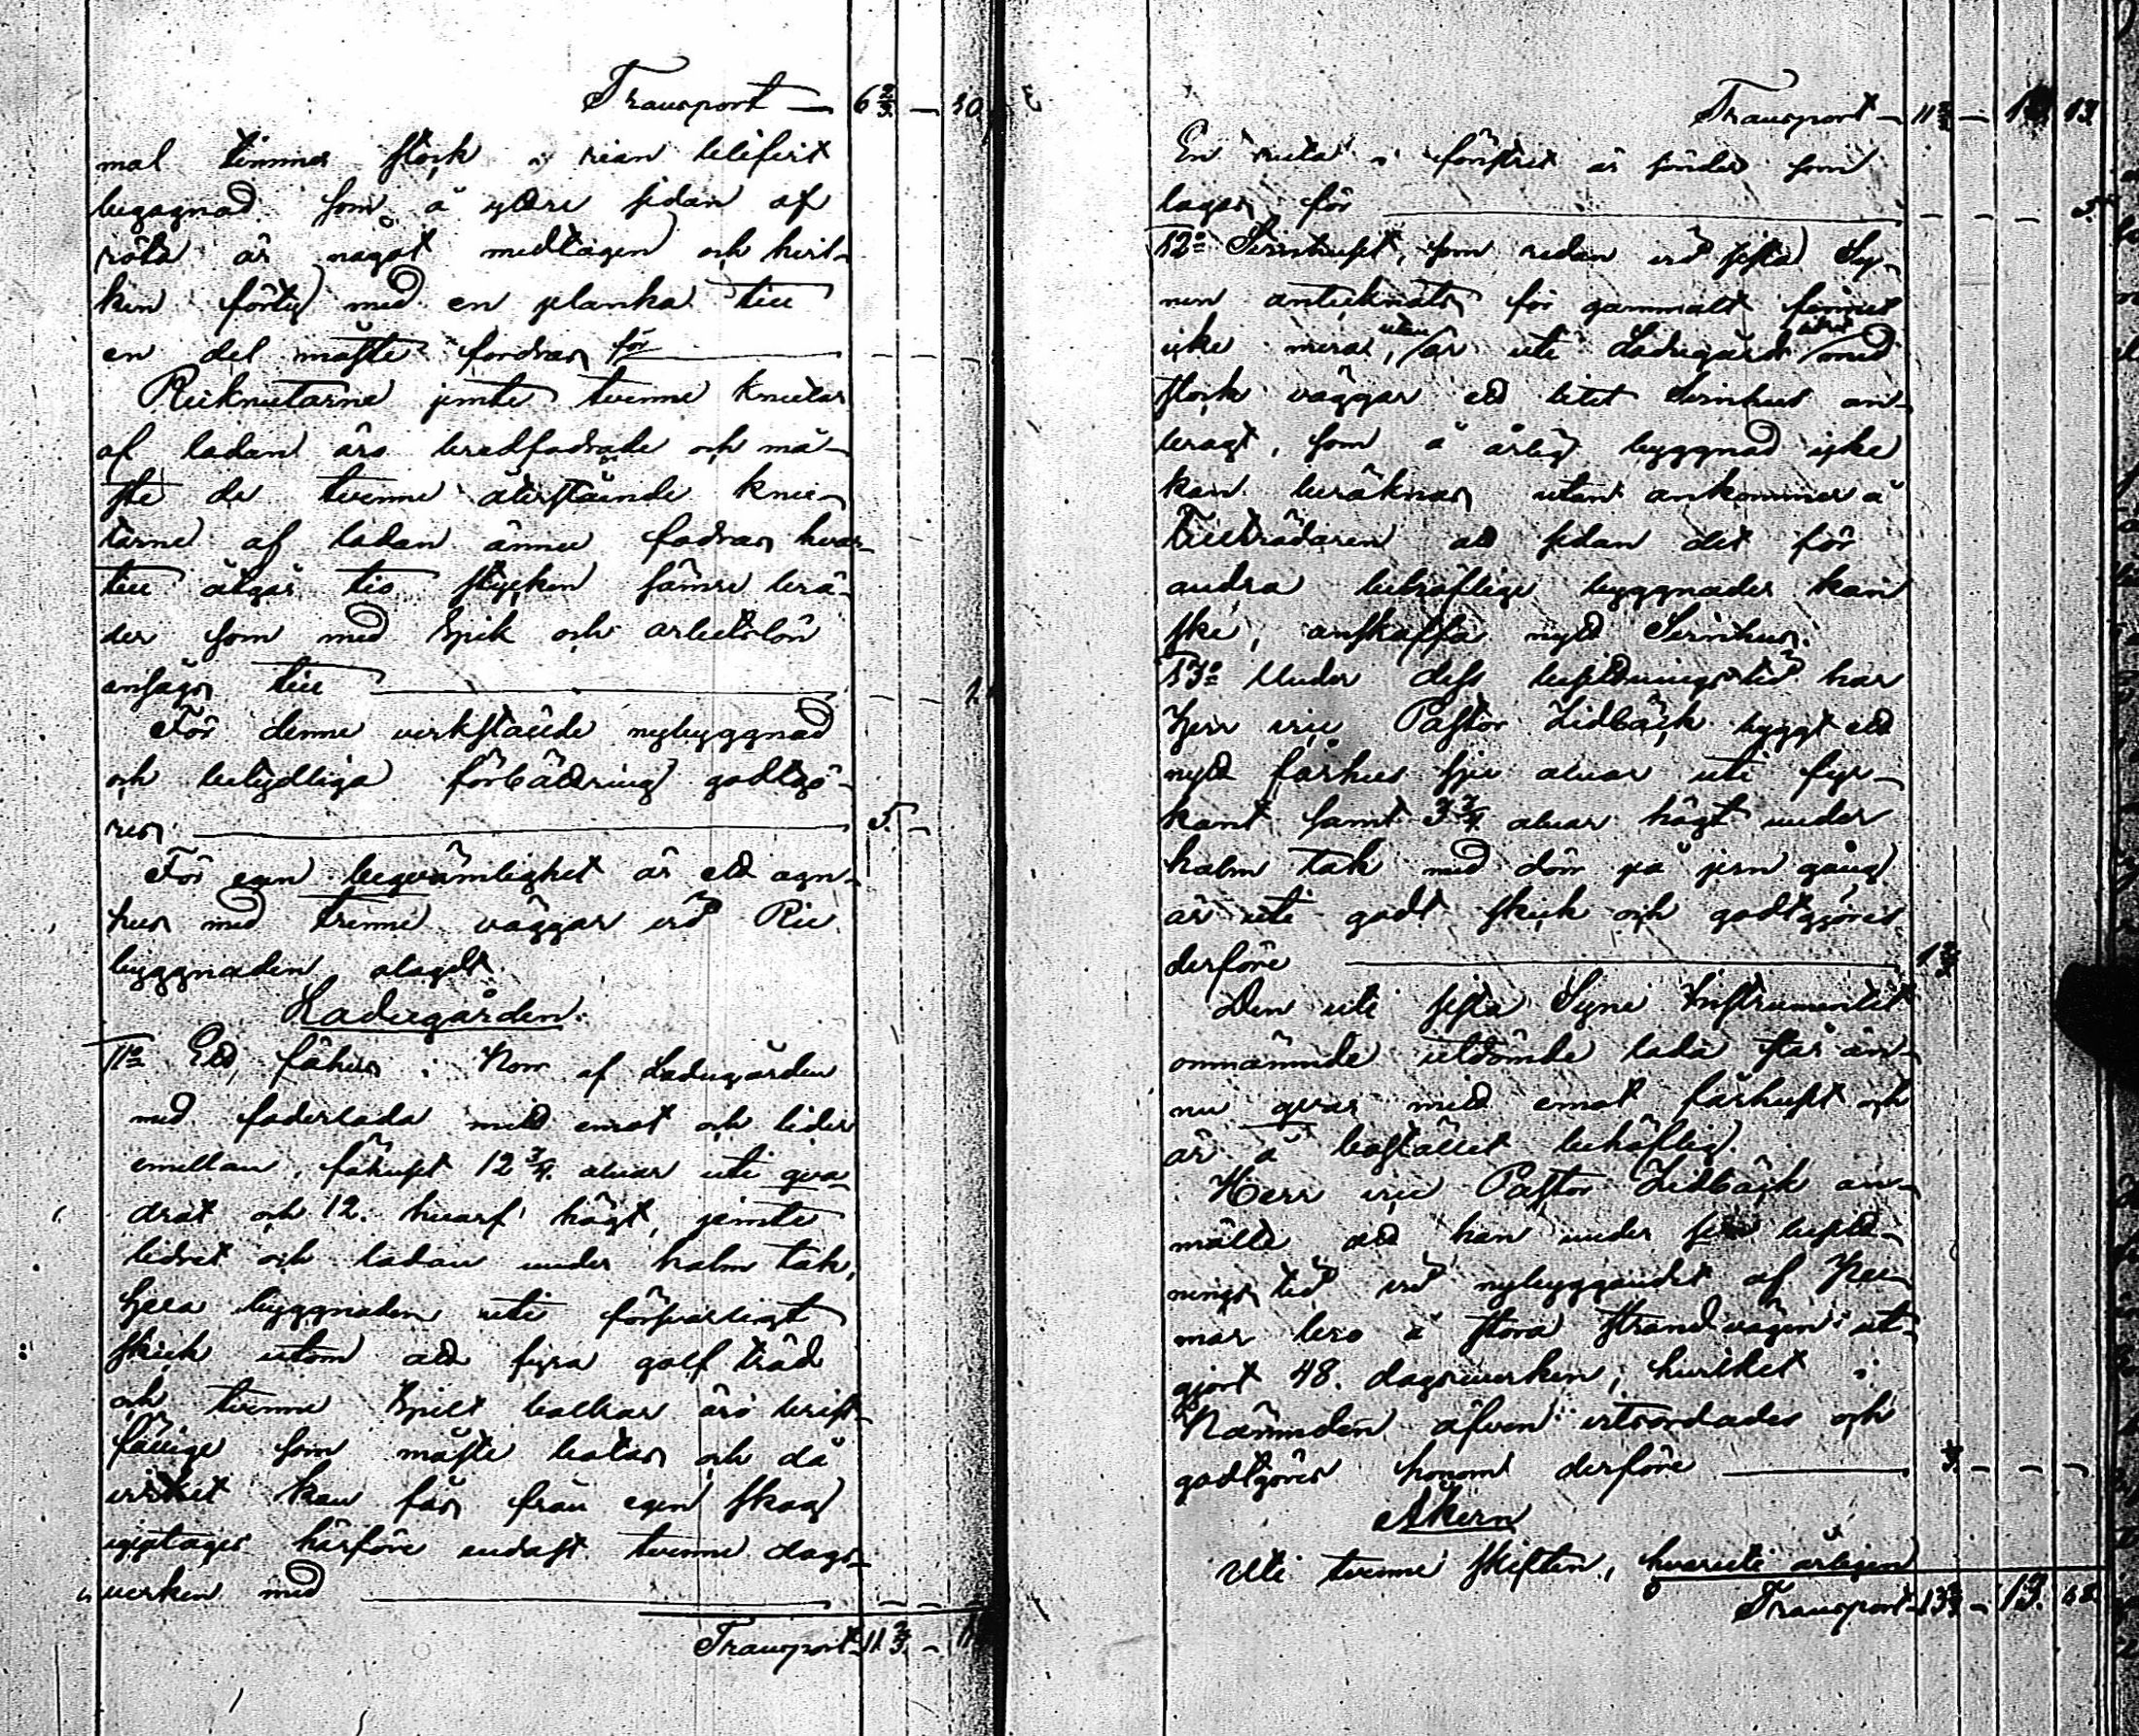 Transport — 6 2/3 — 10
mal timmer stock i rian blifvit
begagnad som å yttre sidan af
röta är något medtagen och hvil-
ken förty med en planka till
en del måste fordras för
Rieknutarne jemte tvenne knutar
af ladan äro brädfodrade och må-
ste de tvenne återstående knu-
tarne af ladan ännu fodras hvar-
till åtgår tio stycken sämre brä-
der som med Spik och arbetslön
anságs till
För denne verkstälde nybyggnad
och betydliga förbättring godtgö-
res 5. —
För egen beqvämlighet är ett agn-
hus med trenne väggar vid Rie
byggnaden alagdt.
Ladugården.
11o Ett fähus i Norr af Ladugården
med foderlada midt emot och lider
emellan, fähuset 12 3/4 alnar uti qva-
drat och 12. hvarf högt, jemte
lidret och ladan under halm tak,
hela byggnaden uti försvarligt
skick utom att fyra golf träd
och tvenne Spilt balkar äro brist-
fällige som måste botas och då
virket kan fås från egen skog
upptages härföre endast tvenne dags-
werken med
Transport 11 2/3 —
Transport — 11 2/3 —
En ruta i fönstret är sönder som
lagas för
12o Svinhuset, som redan vid sista Sy-
nen antecknats för gammalt finnes
icke mera, utan är uti Ladugård med
stock väggar ett litet Svinhus an-
bragt, som å årlig byggnad icke
kan beräknas utan ankommer å
Tillträdaren att sedan det för
andra behöflige byggnader kan
ske, anskaffa nytt Svinhus.
13o Under dess besittningstid har
Herr vice Pastor Lidbäck byggt ett
nytt fårhus sju alnar uti fyr-
kant samt 3 3/4 alnar högt under
halm tak med dörr på jern gång
är uti godt skick och godtgöres
derföre 1 2/3
Den uti sista Syne Instrumentet
omnämnde utdömde lada står än-
nu qvar midt emot fårhuset och
är å bostället behöflig.
Herr vice Pastor Lidbäck an-
mälte att han under sin besitt-
nings tid vid nybyggandet af
mar bro å stora strandvägen ut-
gjort 48. dagsverken, hvilket i
Nämnden äfven vitsordades och
godtgöres honom derföre
Åkern
Uti tvenne skiften, hvaruti årligen
Transport 13 2/3 — 13.